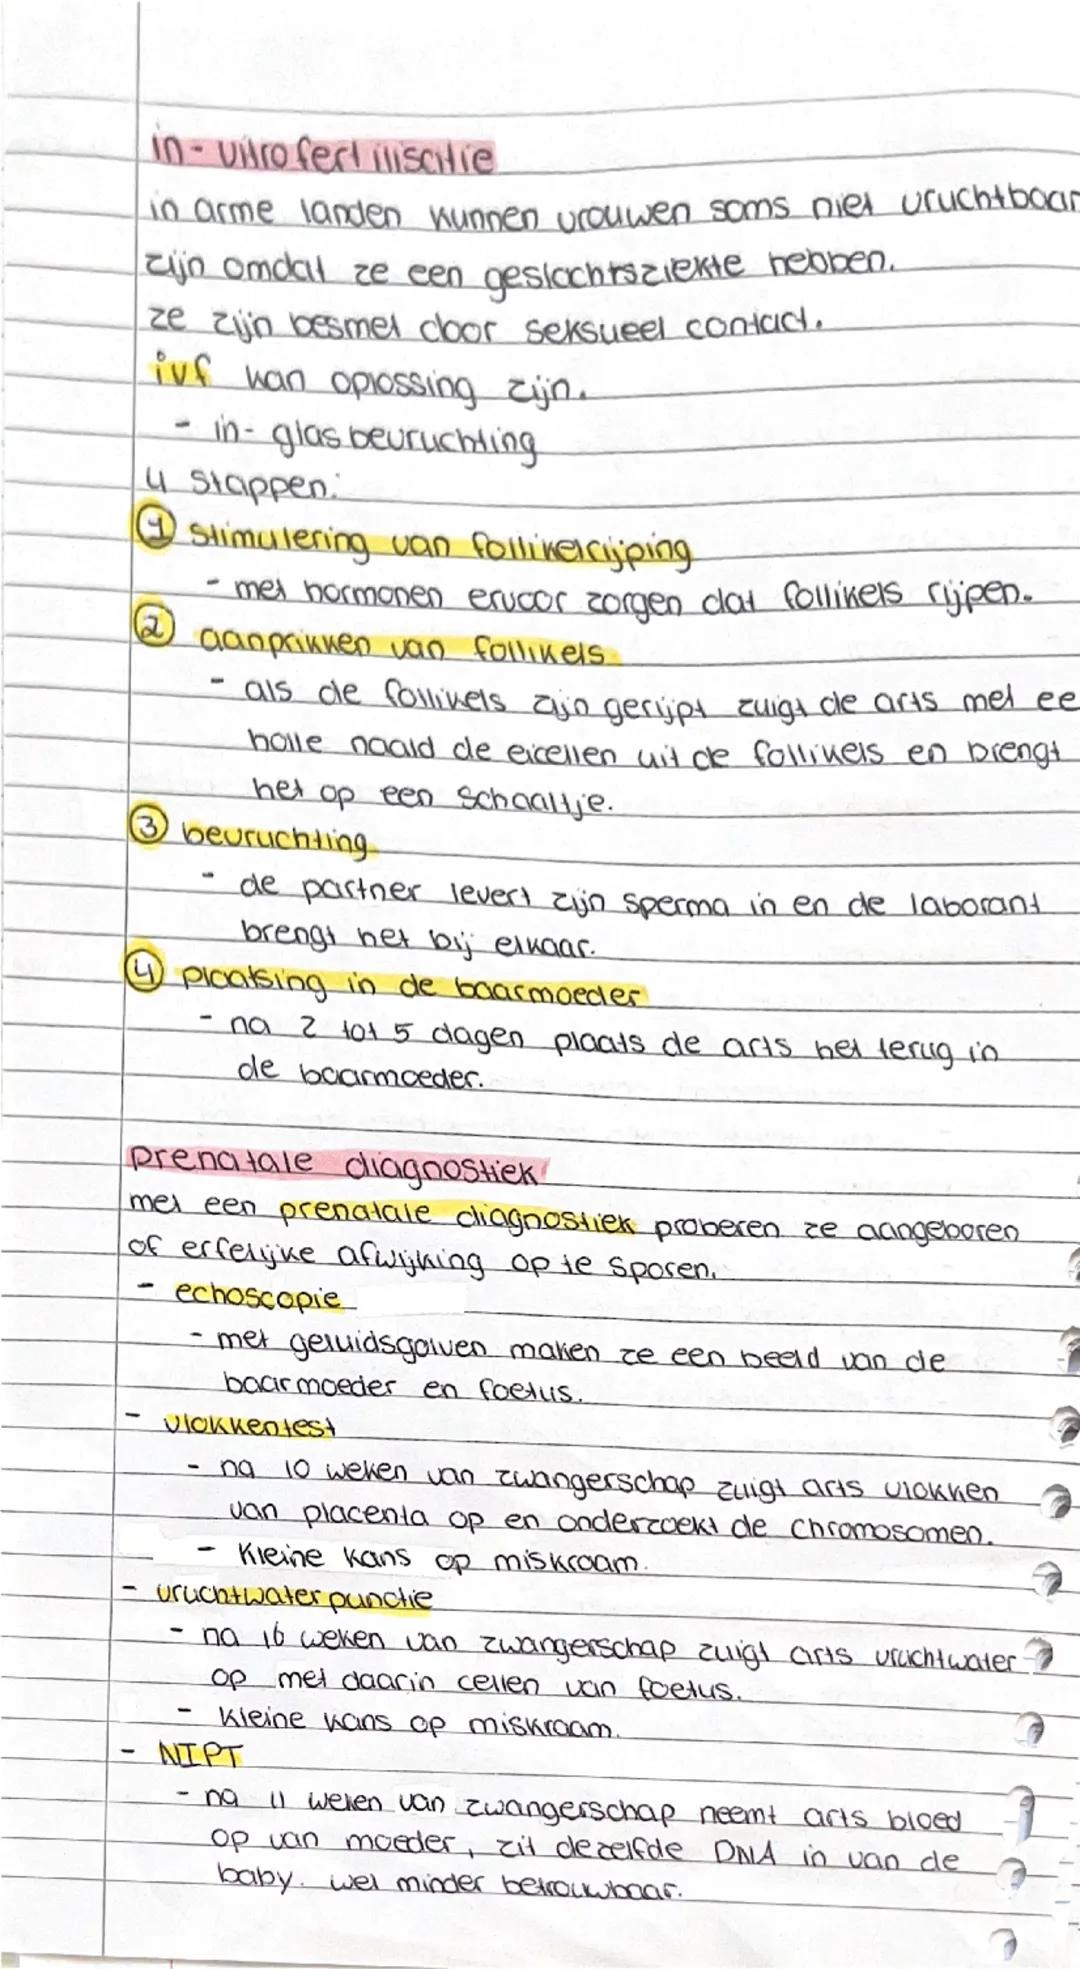 in-vitrofertilisatie
in arme landen kunnen vrouwen soms niet vruchtbaar
zijn omdat ze een geslachtsziekte hebben.
ze zijn besmet door seksueel contact.
ivf kan oplossing zijn.
- in-glas bevruchting
4 stappen:
① stimulering van follikelrijping
- met hormonen ervoor zorgen dat follikels rijpen.
② aanprikken van follikels
- als de follikels zijn gerijpt zuigt de arts met ee
holle naald de eicellen uit de follikels en brengt
het op een schaaltje.
③ bevruchting
- de partner levert zijn sperma in en de laborant
brengt het bij elkaar.
④ plaatsing in de baarmoeder
- na 2 tot 5 dagen plaats de arts het terug in
de baarmoeder.
prenatale diagnostiek
met een prenatale diagnostiek proberen ze aangeboren
of erfelijke afwijking op te sporen.
- echoscopie
- met geluidsgolven maken ze een beeld van de
baarmoeder en foetus.
- vlokkentest
- na 10 weken van zwangerschap zuigt arts vlokken
van placenta op en onderzoekt de chromosomen.
- kleine kans op miskraam.
- vruchtwaterpunctie
- na 16 weken van zwangerschap zuigt arts vruchtwater
op met daarin cellen van foetus.
- kleine kans op miskraam.
- NIPT
- na 11 weken van zwangerschap neemt arts bloed
op van moeder, zit dezelfde DNA in van de
baby. wel minder betrouwbaar.